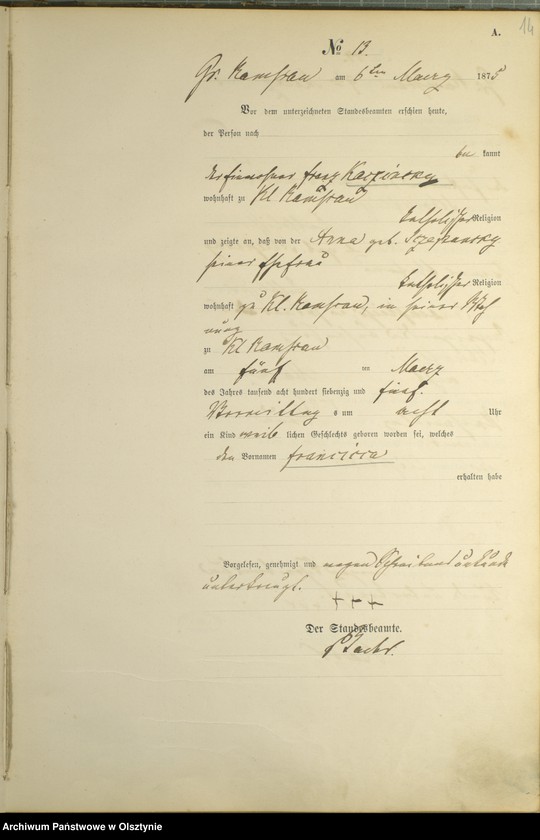 A.
14
No 13.
Gr. Ramsau am 6ten Maerz 1875
Vor dem unterzeichneten Standesbeamten erschien heute,
der Person nach
be kannt
der Franz
wohnhaft zu Kl Ramsau
katholischer Religion
und zeigte an, daß von der Anna geb.
seiner Ehefrau
katholischer Religion
wohnhaft zu Kl. Ramsau, in seiner Woh
nung
zu Kl Ramsau
am fünf ten Maerz
des Jahres tausend acht hundert siebenzig und fünf.
Vormittag s um acht Uhr
ein Kind weib lichen Geschlechts geboren worden sei, welches
den Vornamen
erhalten habe
Vorgelesen, genehmigt und wegen Schreibensunkunde
unterkreuzt.
+++
Der Standesbeamte.
Archiwum Państwowe w Olsztynie